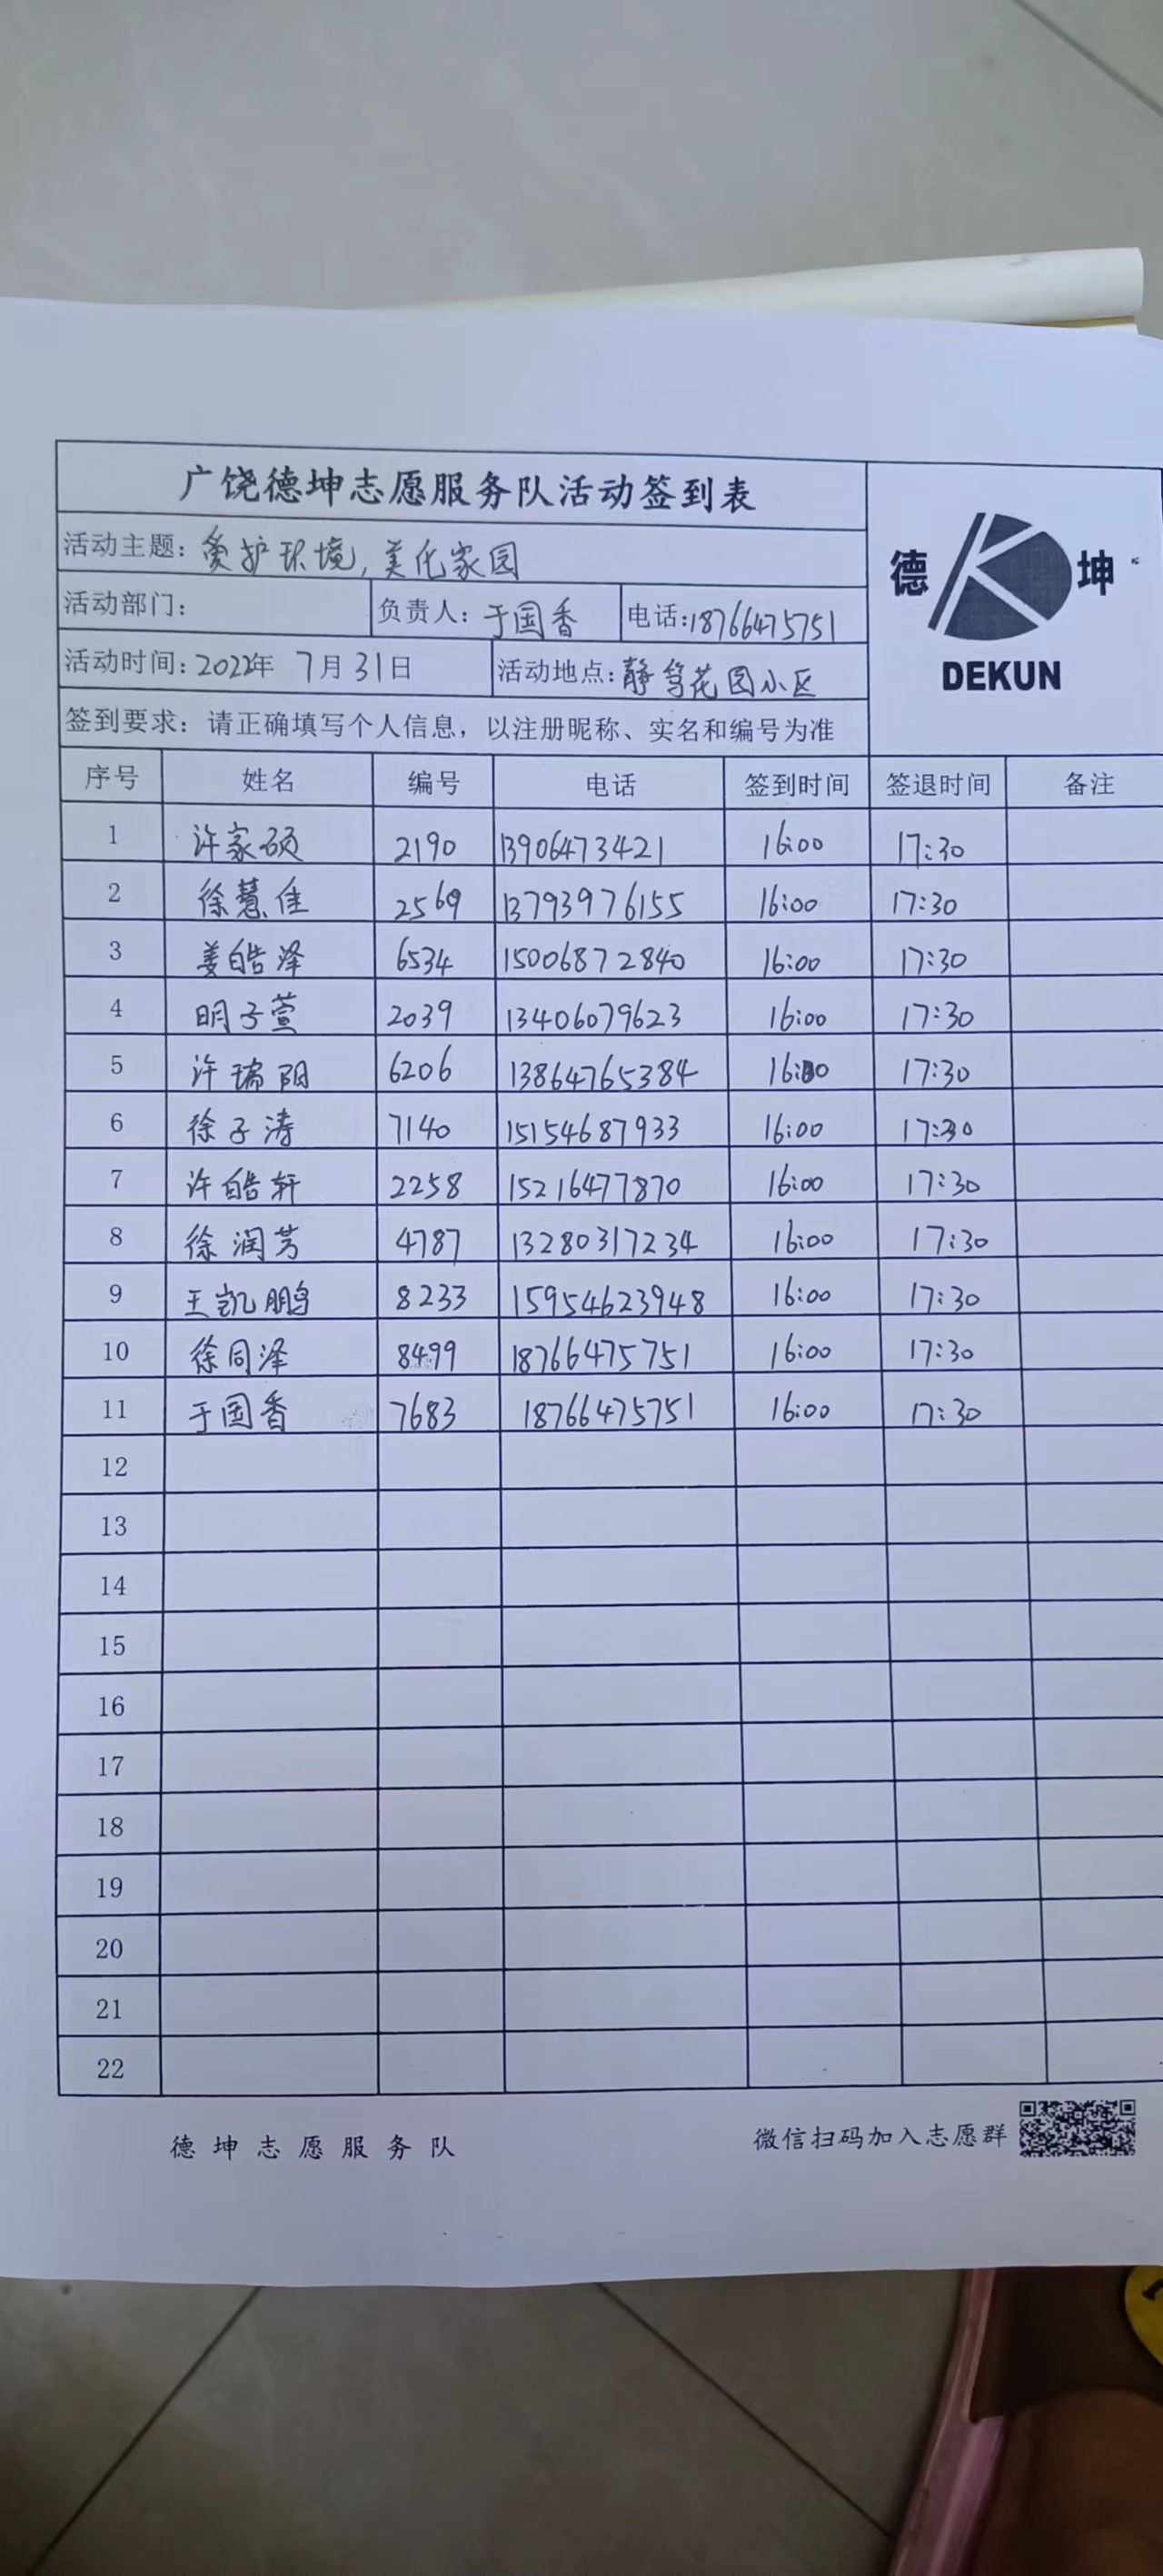 广饶德坤志愿服务队活动签到表
德 坤
DEKUN
活动主题: 爱护环境,美化家园
活动部门: 负责人: 于国香 电话:18766475751
活动时间: 2022年 7月31日 活动地点: 静笃花园小区
签到要求: 请正确填写个人信息, 以注册昵称、实名和编号为准
序号 姓名 编号 电话 签到时间 签退时间 备注
1 许家硕 2190 13906473421 16:00 17:30
2 徐慧佳 2569 13793976155 16:00 17:30
3 姜皓泽 6534 15006872840 16:00 17:30
4 明子萱 2039 13406079623 16:00 17:30
5 许瑞阳 6206 13864765384 16:00 17:30
6 徐子涛 7140 15154687933 16:00 17:30
7 许皓轩 2258 15216477870 16:00 17:30
8 徐润芳 4787 13280317234 16:00 17:30
9 王凯鹏 8233 15954623948 16:00 17:30
10 徐同泽 8499 18766475751 16:00 17:30
11 于国香 7683 18766475751 16:00 17:30
12
13
14
15
16
17
18
19
20
21
22
德坤志愿服务队 微信扫码加入志愿群